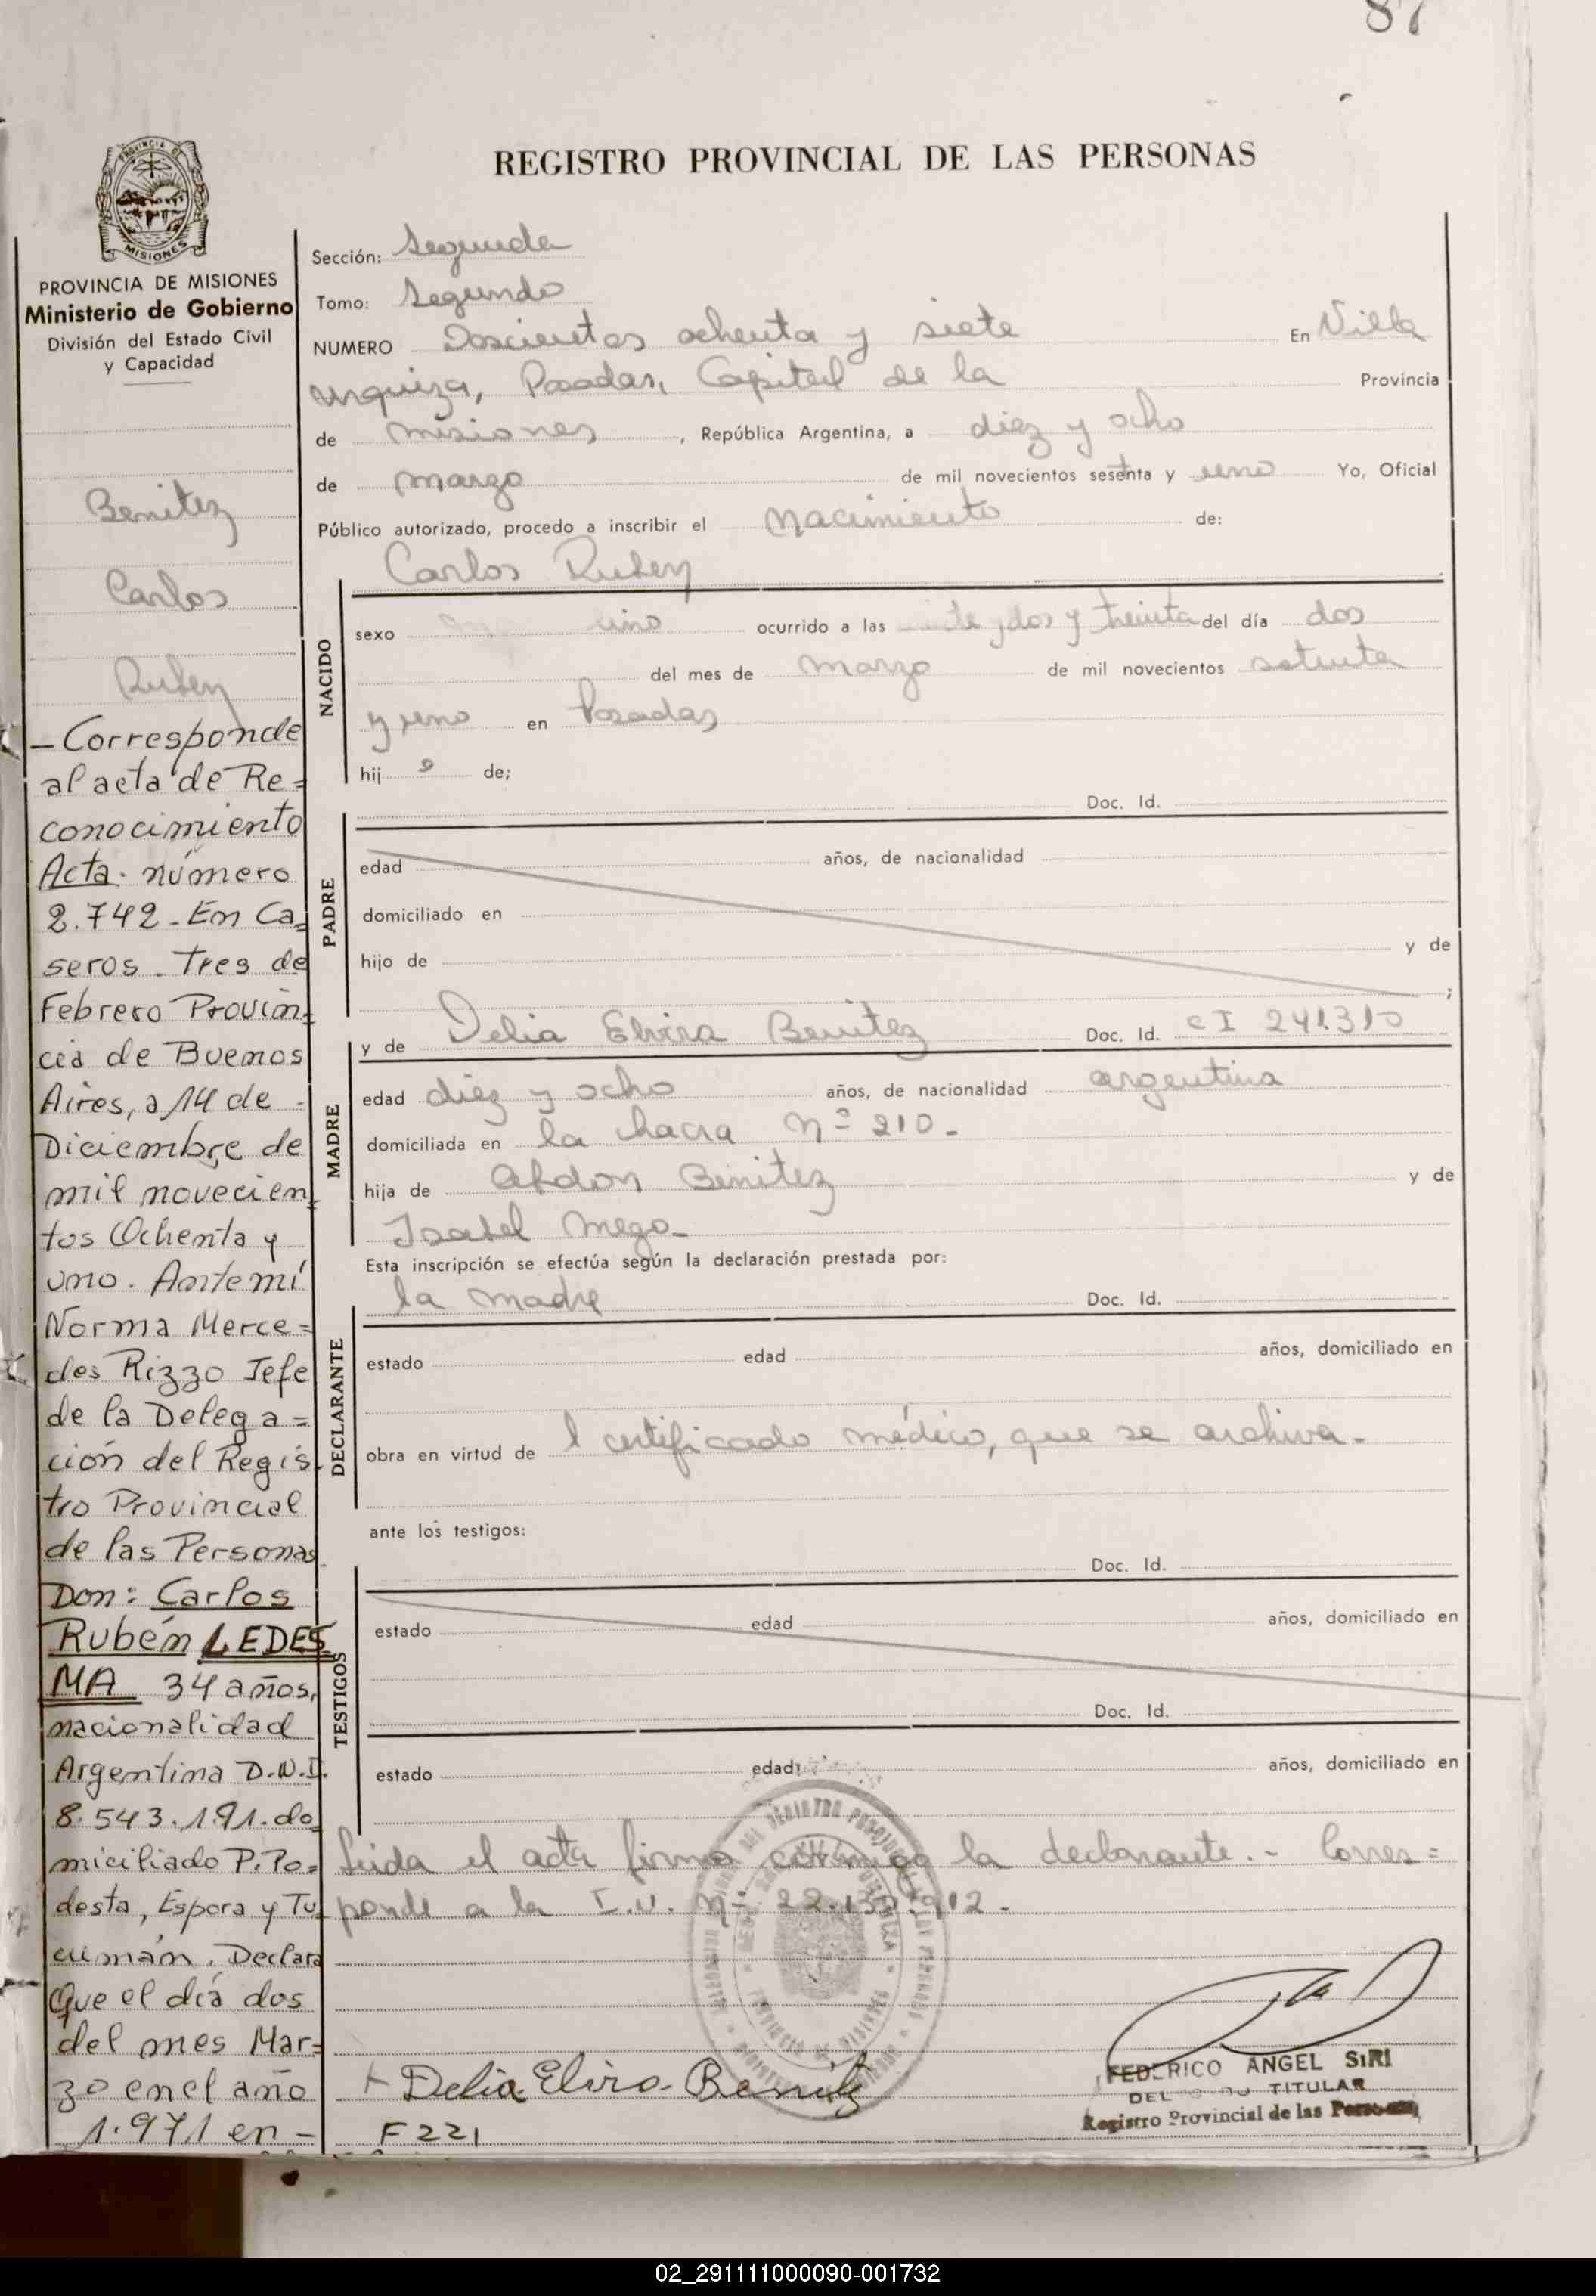 87
REGISTRO PROVINCIAL DE LAS PERSONAS
PROVINCIA DE MISIONES
Ministerio de Gobierno
División del Estado Civil
y Capacidad
Benitez
Carlos
Ruben
— Corresponde
al acta de Re=
conocimiento
Acta. número
2.742 - En Ca=
seros - Tres de
Febrero Provin=
cia de Buenos
Aires, a 14 de -
Diciembre de
mil novecien=
tos Ochenta y
uno. Ante mí
Norma Merce=
des Rizzo Jefe
de la Delega=
ción del Regis=
tro Provincial
de las Personas
Don: Carlos
Rubén LEDES
MA 34 años,
nacionalidad
Argentina D.N.I.
8.543.191. do=
miciliado P. Po=
desta, Espora y Tu=
cumán. Declara
Que el día dos
del mes Mar=
zo en el año
1.971 en -
Sección: Segunda
Tomo: Segundo
NUMERO Doscientos ochenta y siete En Villa
Urquiza, Posadas, Capital de la Provincia
de misiones, República Argentina, a diez y ocho
de marzo de mil novecientos sesenta y uno Yo, Oficial
Público autorizado, procedo a inscribir el Nacimiento de:
Carlos Ruben
NACIDO
sexo ocurrido a las y dos y treinta del día dos
del mes de marzo de mil novecientos setenta
y uno en Posadas
hij o de;
Doc. Id.
PADRE
edad años, de nacionalidad
domiciliado en
hijo de y de
;
y de Delia Elvira Benitez Doc. Id. CI 241.310
MADRE
edad diez y ocho años, de nacionalidad argentina
domiciliada en la chacra Nº 210.-
hija de Abdon Benitez y de
Isabel Mego.-
Esta inscripción se efectúa según la declaración prestada por:
la madre Doc. Id.
DECLARANTE
estado edad años, domiciliado en
obra en virtud de l certificado médico, que se archiva.-
ante los testigos:
Doc. Id.
TESTIGOS
estado edad años, domiciliado en
Doc. Id.
estado edad años, domiciliado en
Leida el acta firma conmigo la declarante.- Corres=
ponde a la I.U. Nº 22.132.912.-
Delia Elvira Benitez
F 221
FEDERICO ANGEL SIRI
TITULAR
Registro Provincial de las Personas
02_291111000090-001732